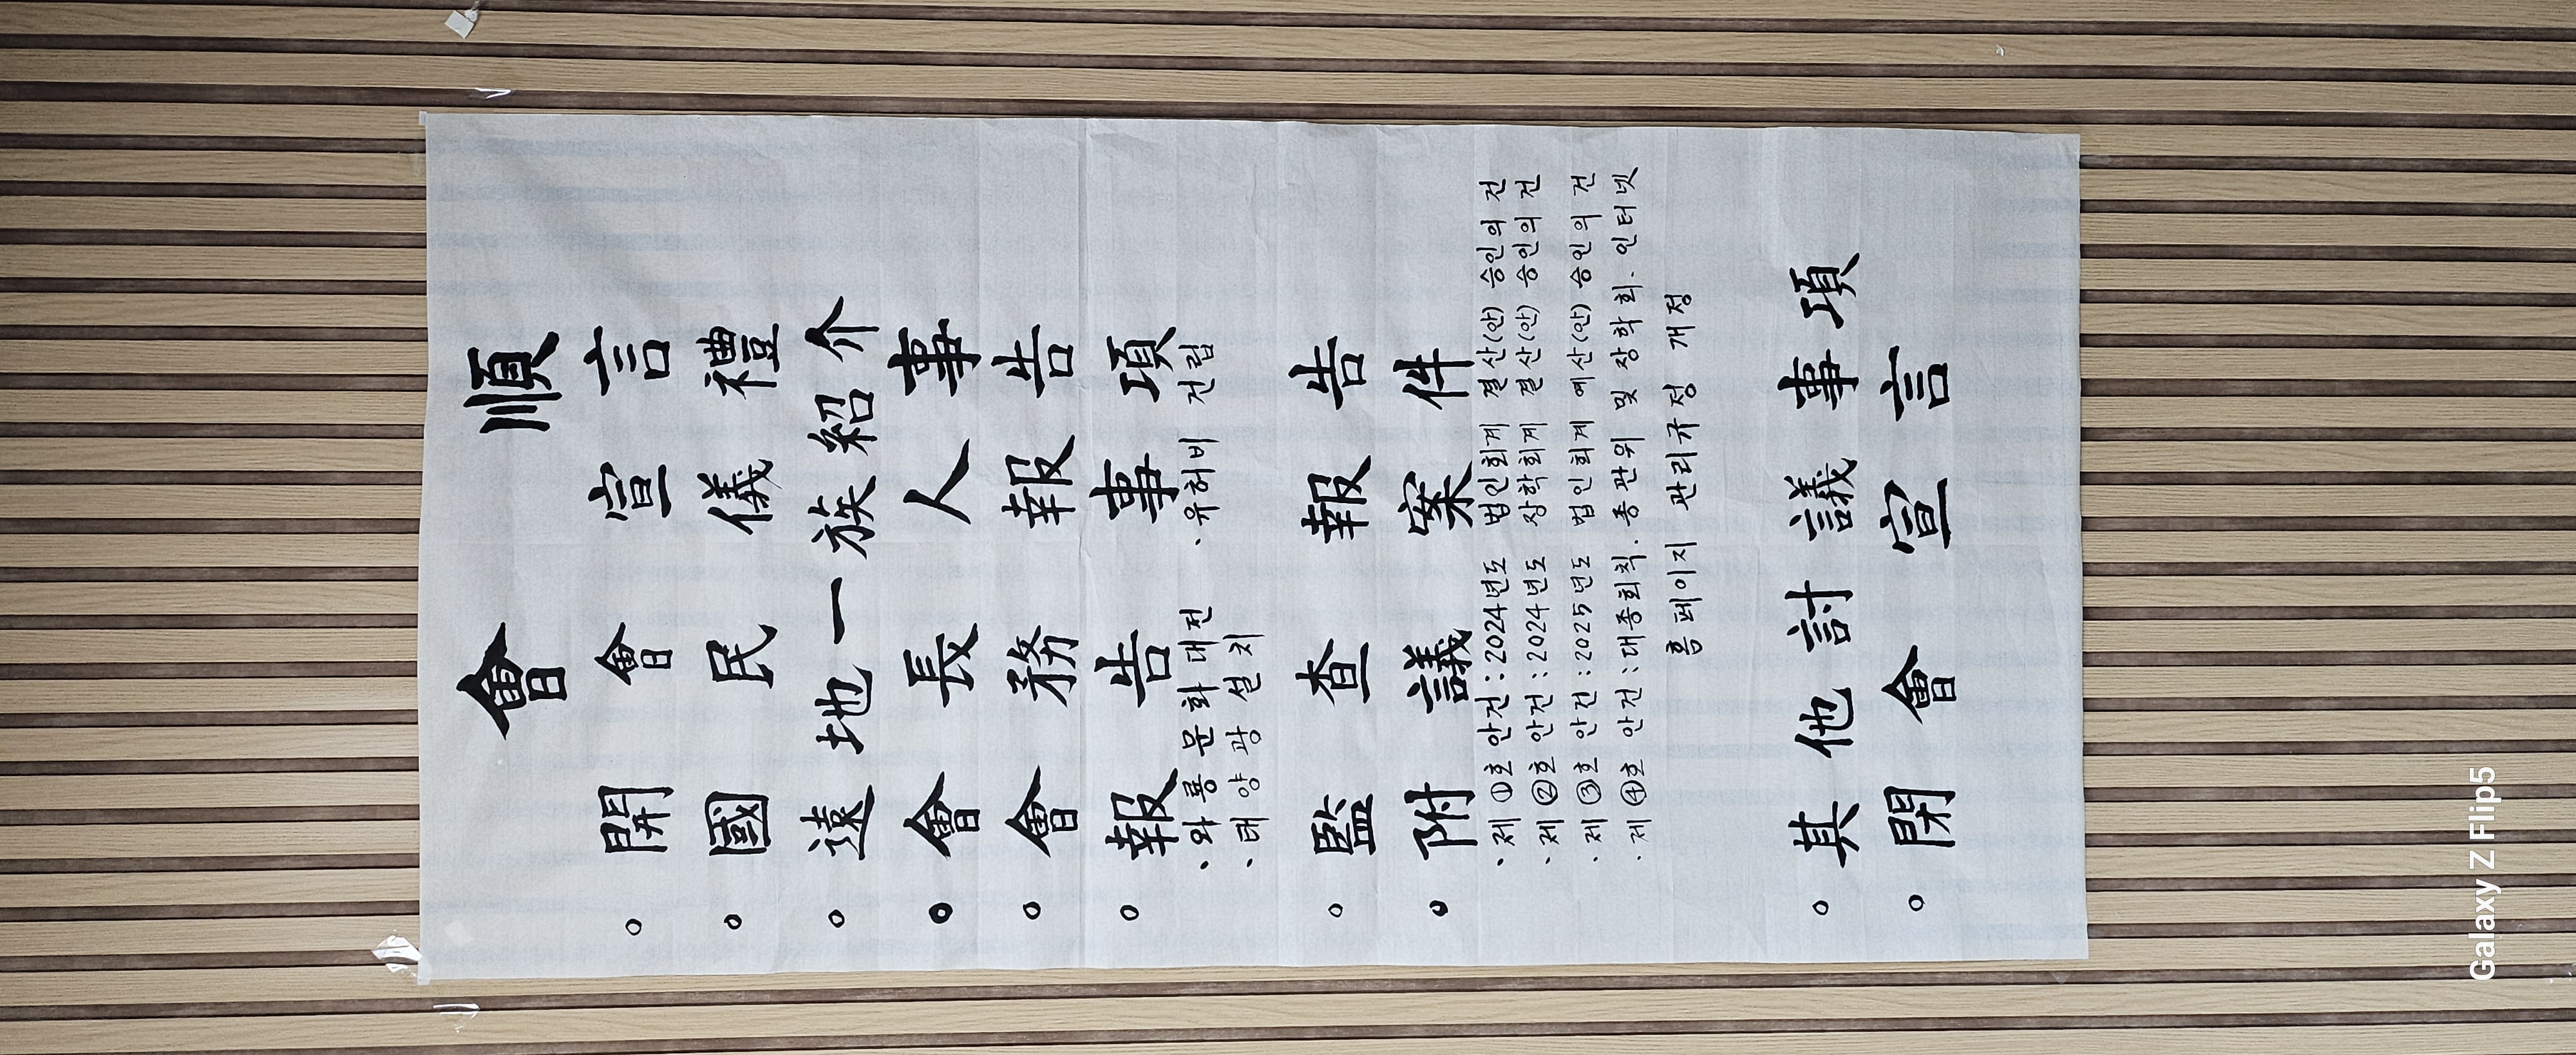 會 順
○ 開 會 宣 言
○ 國 民 儀 禮
○ 遠地一族紹介
○ 會 長 人 事
○ 會 務 報 告
○ 報 告 事 項
· 와룡문화대전 · 유허비 건립
· 태양광설치
○ 監 査 報 告
○ 附 議 案 件
· 제 ①호 안건 : 2024년도 법인회계 결산(안) 승인의 건
· 제 ②호 안건 : 2024년도 장학회계 결산(안) 승인의 건
· 제 ③호 안건 : 2025년도 법인회계 예산(안) 승인의 건
· 제 ④호 안건 : 대종회칙. 종관위 및 장학회. 인터넷
홈페이지 관리규정 개정
○ 其 他 討 議 事 項
○ 閉 會 宣 言
Galaxy Z Flip5